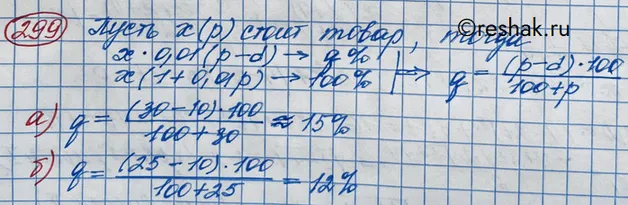 ©reshak.ru
299 Пусть x(р) стоит товар, тогда
x·0,01(p-d) → q%
x(1+0,01p) → 100% | ⇒ q = (p-d)·100 / 100+p
а) q = (30-10)·100 / 100+30 ≈ 15%
б) q = (25-10)·100 / 100+25 = 12%